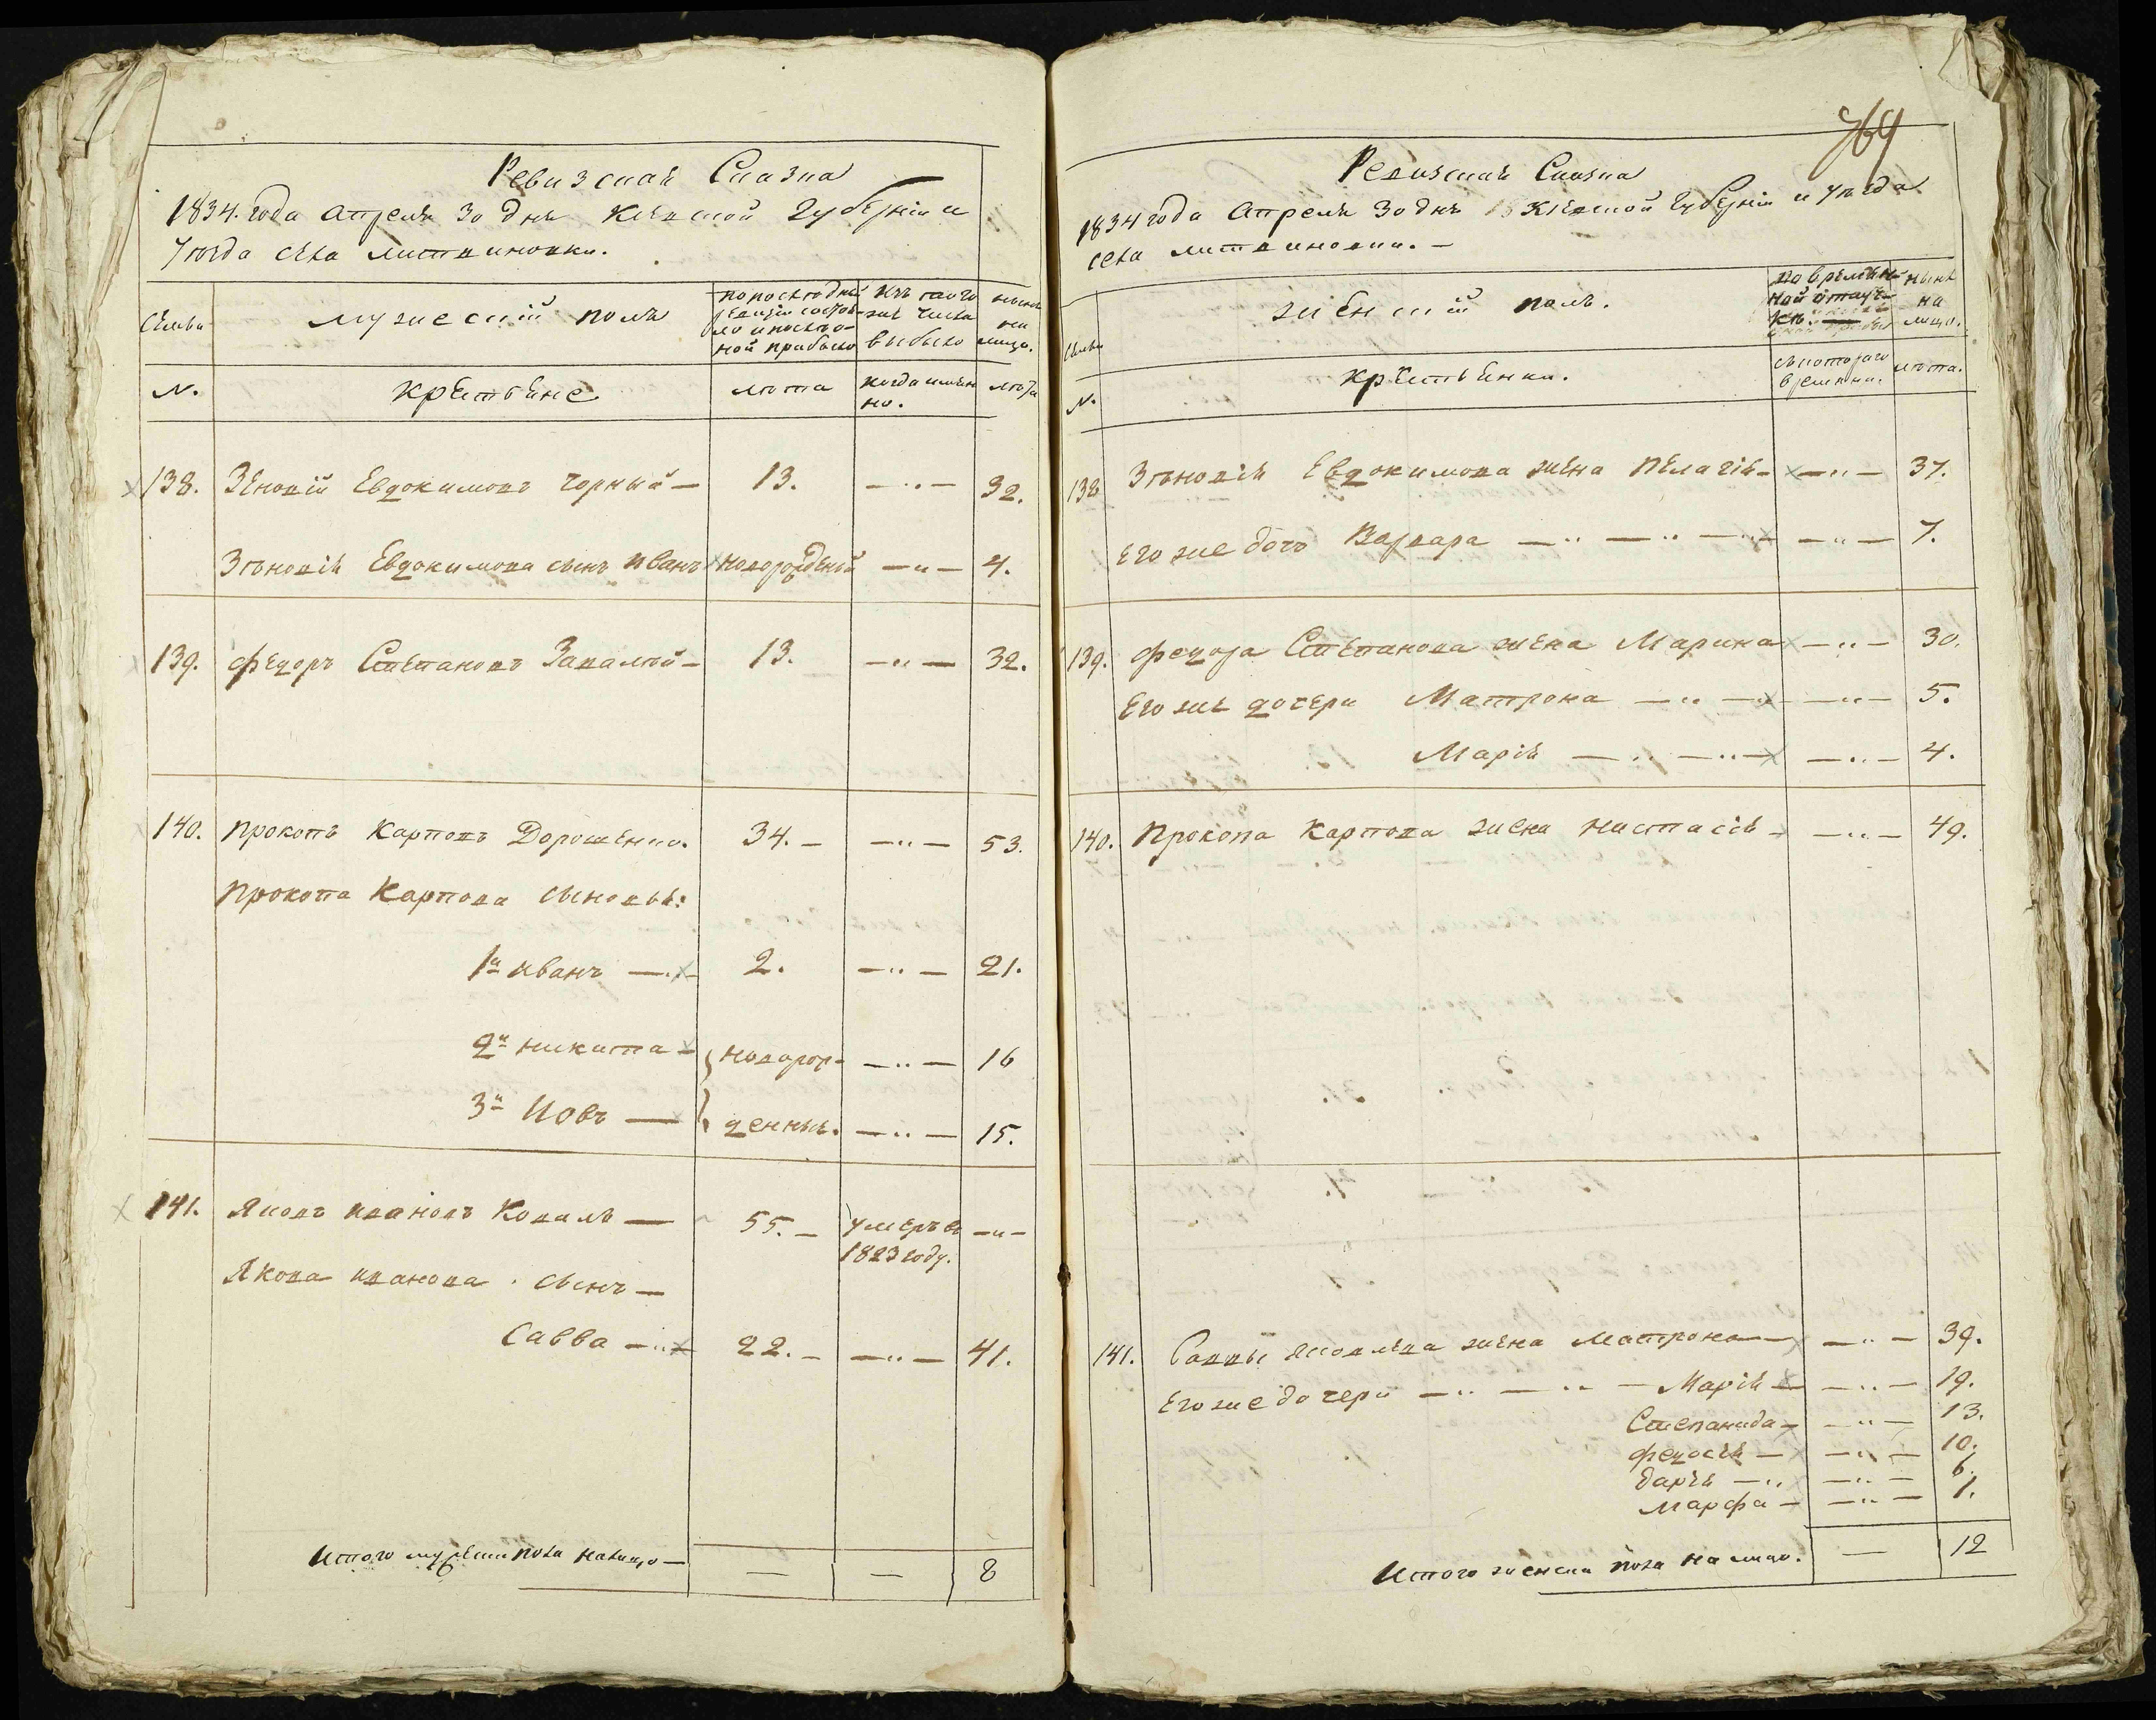 Ревизская Сказка
1834. года апреля 30 дня Кіевской Губерніи и
Уѣзда села Литвиновки.
Семьи
мужеской полъ
по последней
ревизіи состоя-
ло и после о-
ной прибыло
изъ таго
же числа
выбыло
ныне
на
лицо.
№.
крестьяне
лѣта
когда имян
но.
лѣта
138. Зѣновій Евдокимовъ Чорный — 13. — „ — 32.
Зѣновія Евдокимова сынъ Иванъ новорожденый — „ — 4.
139. Федоръ Степановъ Завалнй — 13. — „ — 32.
140. Прокопъ Карповъ Дорошенко. 34. — — „ — 53.
Прокопа Карпова сыновья:
1й Иванъ — „ — 2. — „ — 21.
2й Никита — новорож- — „ — 16
3й Иовъ — денныя. — „ — 15.
141. Яковъ Ивановъ Коваль — 55. — умеръ в — „ —
1823 году.
Якова Иванова сынъ —
Савва — „ — 22. — — „ — 41.
Итого мужеска пола налицо — — — 8
764
Ревизская Сказка
1834 года Апреля 30 дня Кіевской Губерніи и Уѣзда
села Литвиновки. —
Семьи
женскій полъ.
во времен-
ной отлуч-
ке.
ныне
на
лицо.
№.
крестьянки.
съ котораго
времени.
лѣта.
138 Зѣновія Евдокимова жена Пелагія — — „ — 37.
Его же дочь Варвара — „ — „ — „ — — „ — 7.
139. Федора Степанова жена Марина — „ — 30.
Его же дочери Матрона — „ — — „ — 5.
Марія — „ — „ — — „ — 4.
140. Прокопа Карпова жена Настасія — — „ — 49.
141. Саввы Яковлева жена Матрона — — „ — 39.
Его же дочери — „ — „ — Марія — — „ — 19.
Степанида — — „ — 13.
Федосія — — „ — 10.
Дарья — „ — „ — 6.
Марфа — — „ — 1.
Итого женска пола на лицо. — 12